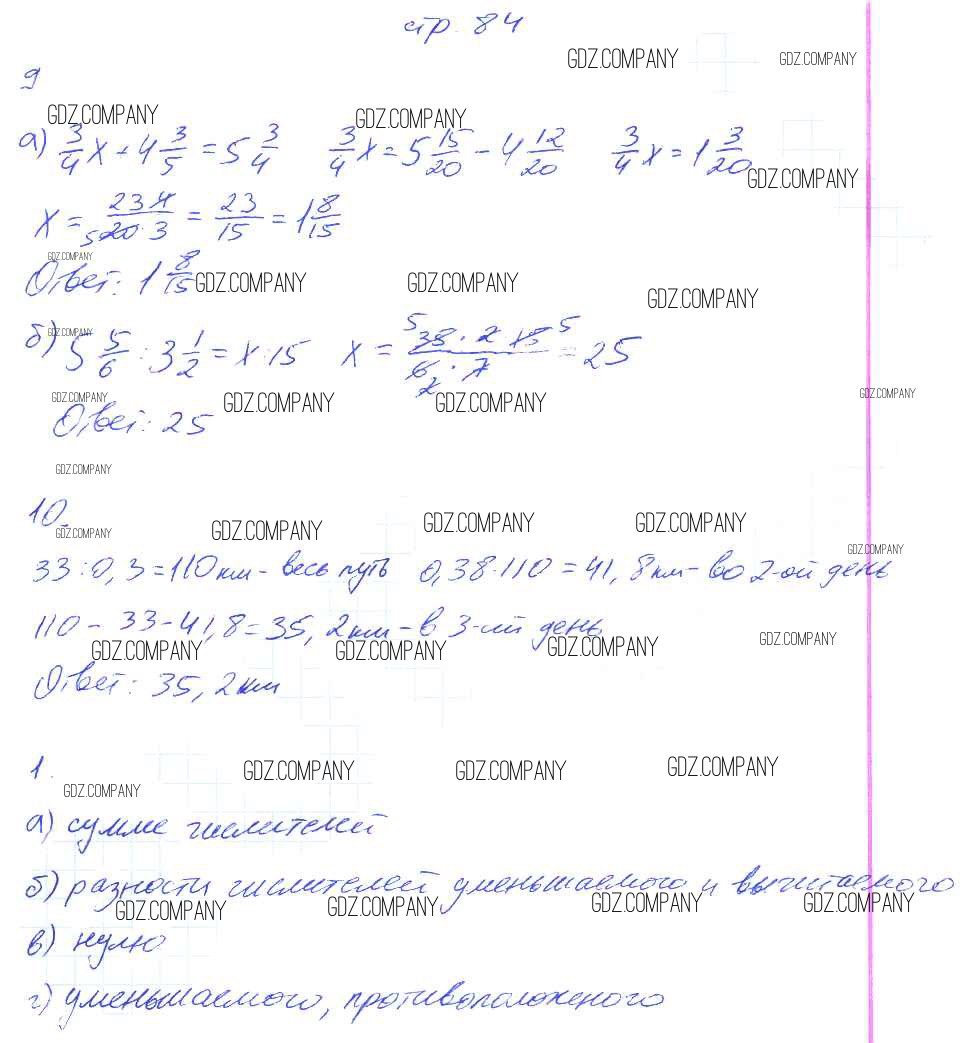 стр. 84
GDZ.COMPANY GDZ.COMPANY
9
GDZ.COMPANY GDZ.COMPANY
а) 3/4 x + 4 3/5 = 5 3/4 3/4 x = 5 15/20 - 4 12/20 3/4 x = 1 3/20
GDZ.COMPANY
x = 23·4/20·3 5 = 23/15 = 1 8/15
GDZ.COMPANY
Ответ: 1 8/15 GDZ.COMPANY GDZ.COMPANY GDZ.COMPANY
GDZ.COMPANY
б) 5 5/6 : 3 1/2 = x : 15 x = 5 35 · 2 · 15 5/6 2 · 7 = 25
GDZ.COMPANY GDZ.COMPANY GDZ.COMPANY GDZ.COMPANY
Ответ: 25
GDZ.COMPANY
10.
GDZ.COMPANY GDZ.COMPANY GDZ.COMPANY GDZ.COMPANY GDZ.COMPANY
33 : 0,3 = 110 км - весь путь 0,38·110 = 41,8 км - во 2-ой день
110 - 33 - 41,8 = 35,2 км - в 3-ий день
GDZ.COMPANY GDZ.COMPANY GDZ.COMPANY GDZ.COMPANY
Ответ: 35,2 км
1.
GDZ.COMPANY GDZ.COMPANY GDZ.COMPANY
GDZ.COMPANY
а) сумме числителей
б) разности числителей уменьшаемого и вычитаемого
GDZ.COMPANY GDZ.COMPANY GDZ.COMPANY GDZ.COMPANY
в) нулю
г) уменьшаемого, противоположеного